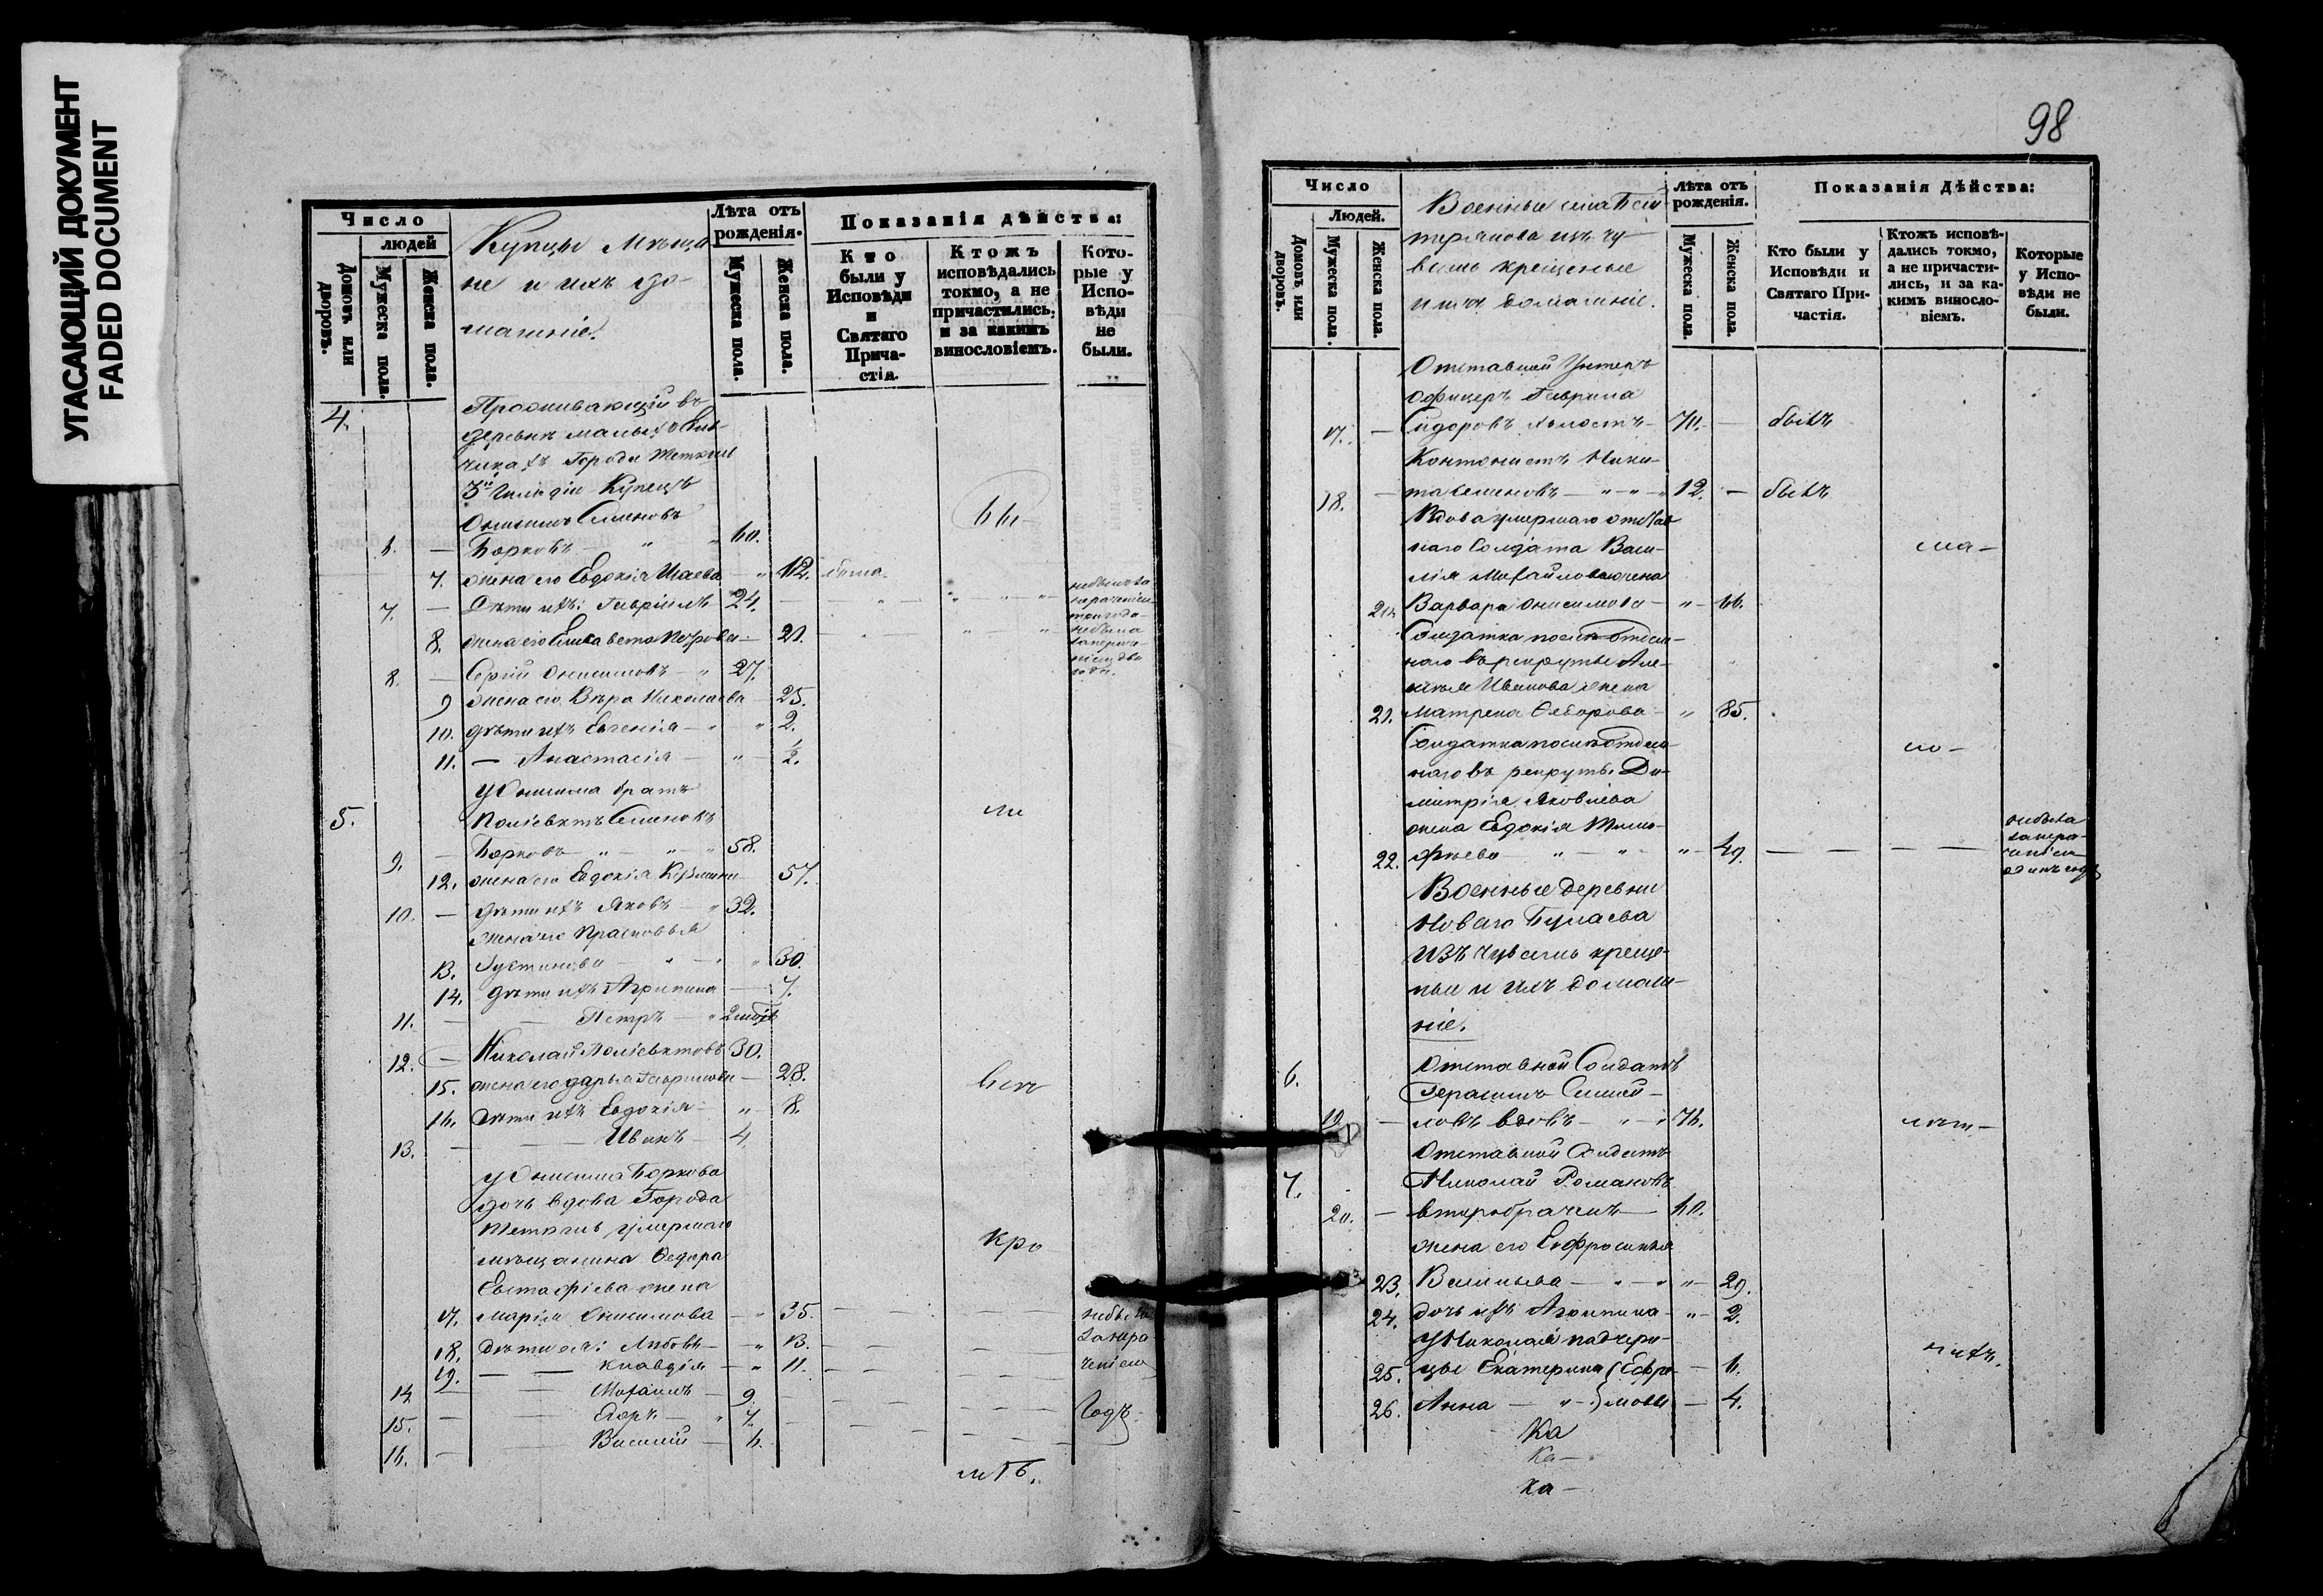 УГАСАЮЩИЙ ДОКУМЕНТ
FADED DOCUMENT
Число
людей
Домовъ или дворовъ.
Мужеска пола.
Женска пола.
Купцы Мѣща
не и ихъ до-
машніе.
Лѣта отъ
рожденія.
Мужеска пола.
Женска пола.
Показанія дѣйства:
Кто
были у
Исповѣди
и
Святаго
Прича-
стія.
Ктожъ
исповѣдались
токмо, а не
причастились,
и за какимъ
винословіемъ.
Кото-
рые у
Испо-
вѣди
не
были.
4. Проживающій въ
деревнѣ малыхъ
города Тетюшъ
3й Гильдіи Купецъ
Онисимъ Семеновъ
6. — Борковъ " " 60.
7. жена его Евдокія Исаева — "
7. — Дѣти ихъ: Гавріилъ 24.
8. жена его Елисавета Петрова — 21.
8. — Сергій Онисимовъ — " 27.
9 жена его Вѣра Николаева — 25.
10. дѣти ихъ Евгенія — " " 2.
11. — Анастасія — " 1/2.
У Онисима братъ
5. Поліевктъ Семеновъ
9. — Борковъ " — " — " 58.
12. жена его Евдокія 57.
10. — дѣти ихъ Яковъ — " 32.
жена его Прасковья
13. Густинова — " — " 30.
14. дѣти ихъ Агрипина — 7.
11. — — Петръ — "
12. — Николай Поліевктовъ 30.
15. жена его Дарья Гаврилова — 28.
16. Дѣти ихъ Евдокія — " 8.
13. — — Иванъ — 4
у Онисима Боркова
дочь вдова Города
Тетюшъ умершаго
мѣщанина Федора
Евстафіева жена
17. Марія Онисимова — " 35.
18. Дѣти ея: Любовь — " 13.
19. — — Клавдія — " 11.
14. — — Михаилъ — 9
15. — — Егоръ — " 7.
16. — — Василій — 6.
Кро
Годъ
98
Число
Людей.
Домовъ или дворовъ.
Мужеска пола.
Женска пола.
Военные
терякова изъ чу
вашъ крещеные
и ихъ домашніе.
Лѣта отъ
рожденія.
Мужеска пола.
Женска пола.
Показанія Дѣйства:
Кто были у
Исповѣди и
Святаго При-
частія.
Ктожъ исповѣ-
дались токмо,
а не причасти-
лись, и за ка-
кимъ винослo-
віемъ.
Которые
у Испо-
вѣди не
были.
Отставной Унтеръ
Офицеръ Гаврила
17. — Сидоровъ холостъ — 70. — былъ
Кантонистъ Ники-
18. — та Семеновъ — " — " 12. — былъ
Вдова умершаго отстав
наго Солдата Васи-
лія Михайлова жена
20. Варвара Онисимова — " — 66.
Солдатка послѣ отдан-
наго въ рекруты Але-
ксѣя Иванова жена
21. Матрена Ѳедорова — " 85.
Солдатка послѣ отдан-
наго въ рекруты Ди-
митрія Яковлева
жена Евдокія Тимо-
22. фѣева — " — " — " — 49.
Военные деревни
Новаго Булаева
изъ чувашъ креще-
ные и ихъ домаш-
ніе.
6. Отставной Солдатъ
Герасимъ Самой-
19. — ловъ вдовъ — " — " 76.
Отставной Солдатъ
7. Николай Романовъ
20. — второбраченъ — 40.
жена его Евфросинья
23. Васильева — " — " — 29.
24. дочь ихъ Агрипина — " — 2.
У Николая падчери-
25. цы Екатерина — 6.
26. Анна — " — 4.
Ка
Ка —
ка —